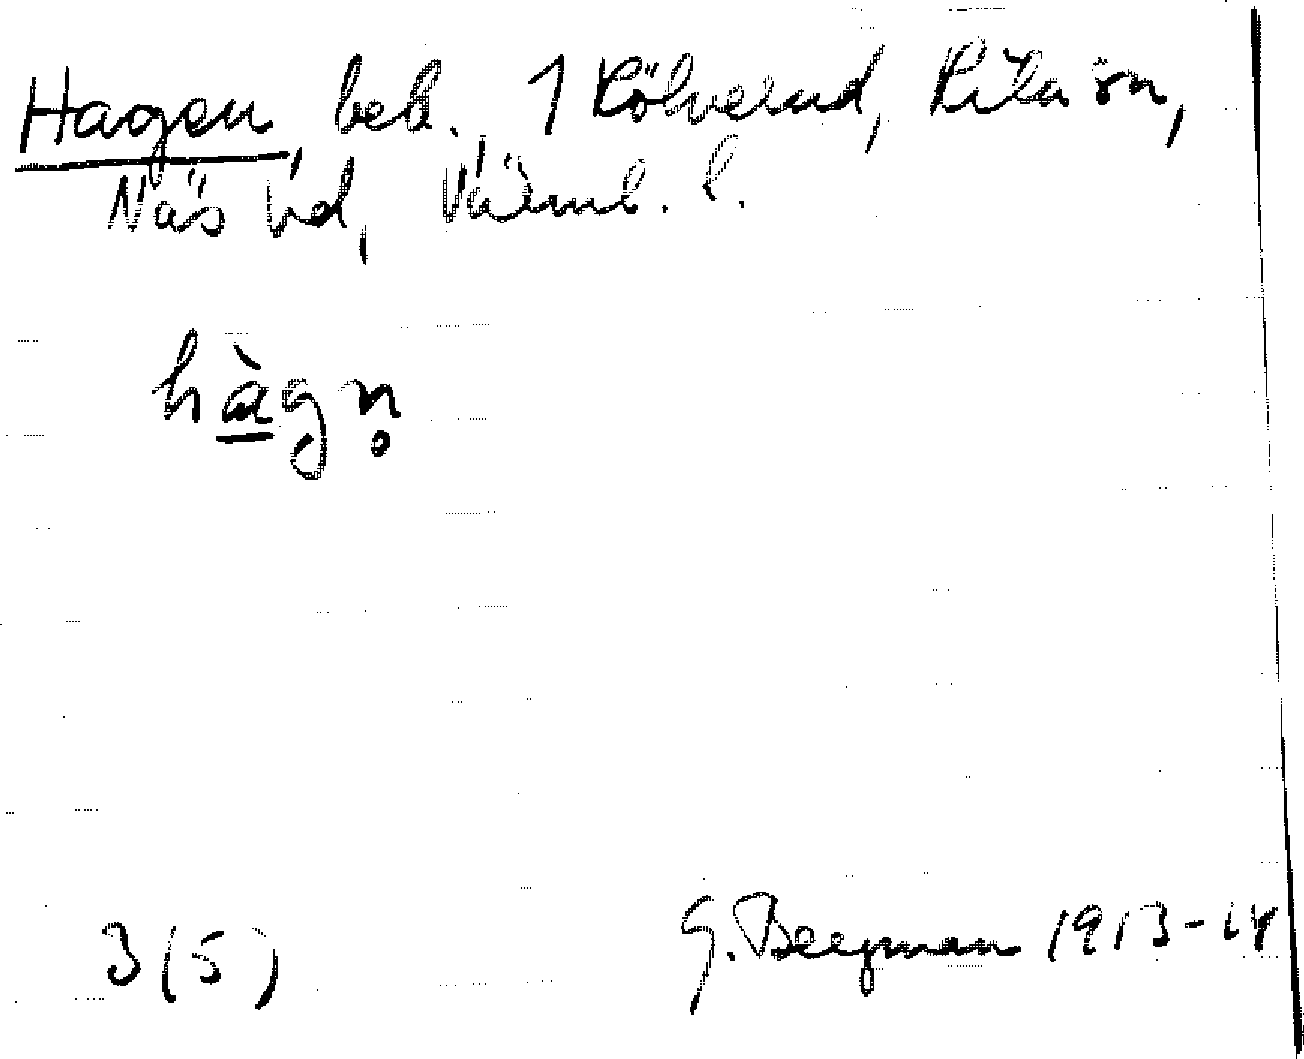 Hagen, beb. 1 Kölverud, Kila sn,
Näs hd, Värml. l.
hàgn̥
3(5)
G. Bergman 1913-14